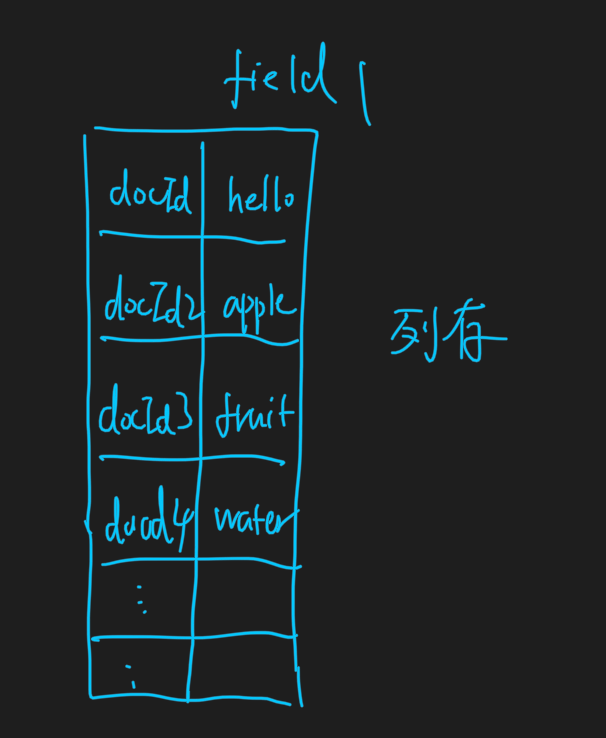 field 1
docId hello
docId2 apple
列存
docId3 fruit
docId4 water
⋮
⋮